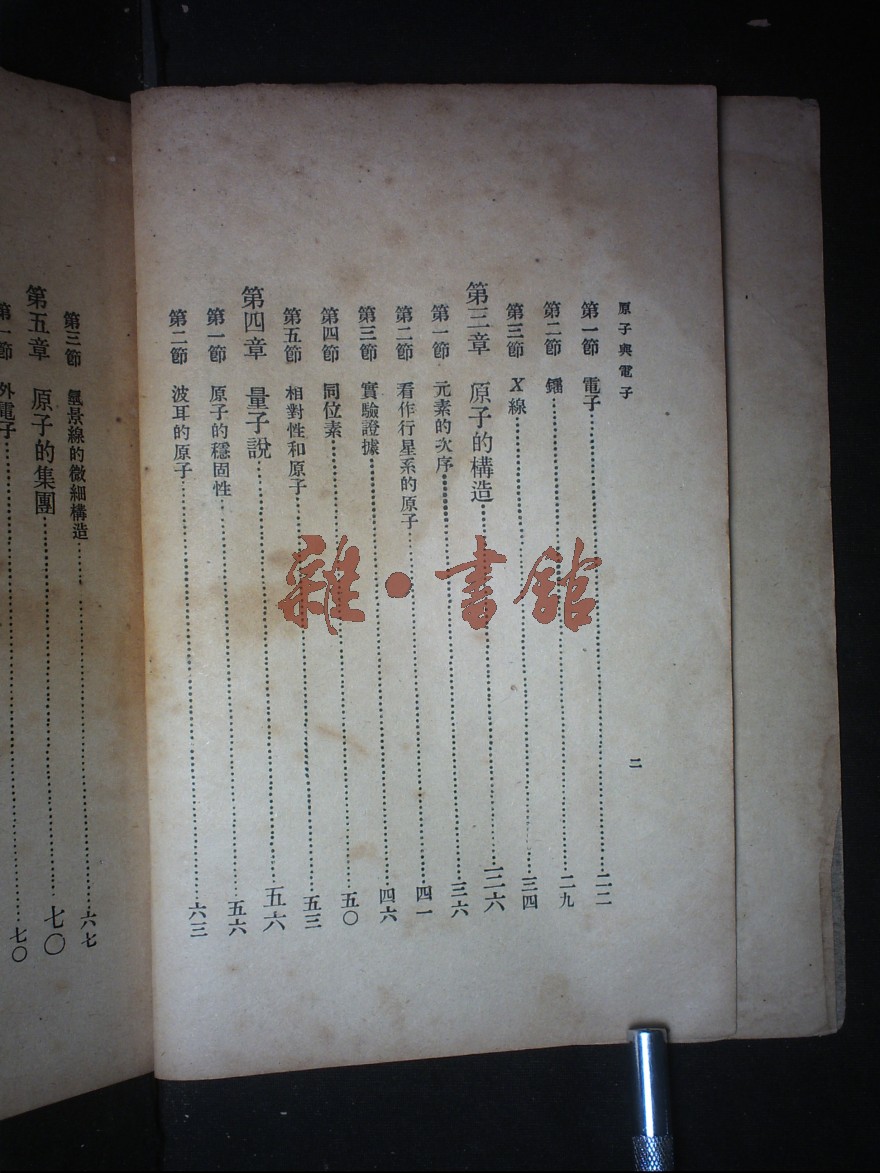 原子與電子
二
第一節 電子……二二
第二節 鐳……二九
第三節 X線……三四
第三章 原子的構造……三六
第一節 元素的次序……三六
第二節 看作行星系的原子……四一
第三節 實驗證據……四六
第四節 同位素……五〇
第五節 相對性和原子……五三
第四章 量子說……五六
第一節 原子的穩固性……五六
第二節 波耳的原子……六三
第三節 景線的微細構造……六七
第五章 原子的集團……七〇
第一節 外電子……七〇
雜·書館